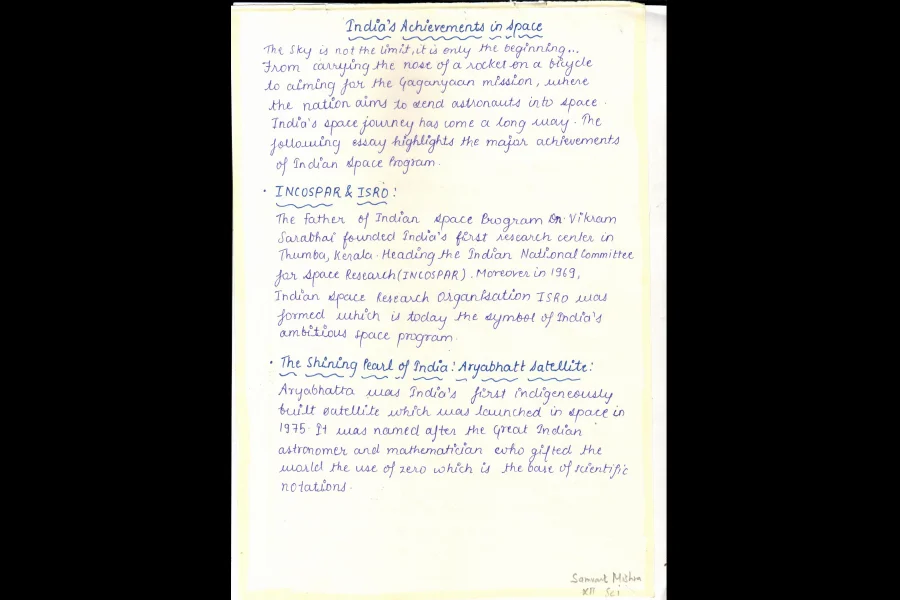 India's Achievements in Space
The Sky is not the limit, it is only the beginning...
From carrying the nose of a rocket on a bicycle
to aiming for the Gaganyaan mission, where
the nation aims to send astronauts into space.
India's space journey has come a long way. The
following essay highlights the major achievements
of Indian Space Program.
• INCOSPAR & ISRO:
The Father of Indian Space Program Dr. Vikram
Sarabhai founded India's first research center in
Thumba, Kerala. Heading the Indian National Committee
for Space Research (INCOSPAR). Moreover in 1969,
Indian Space Research Organisation ISRO was
formed which is today the symbol of India's
ambitious space program.
• The Shining Pearl of India: Aryabhatt Satellite:
Aryabhatta was India's first indigeneously
built satellite which was launched in space in
1975. It was named after the Great Indian
astronomer and mathematician who gifted the
world the use of zero which is the base of scientific
notations.
Samvart Mishra
XII Sci